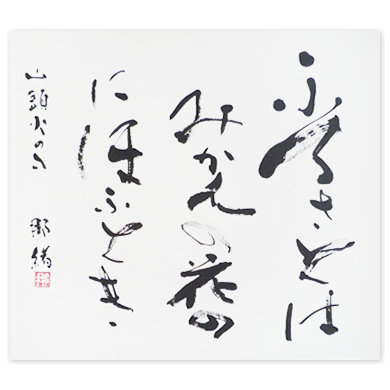 ふるさとは
みかんの花の
にほふとき
山頭火の句